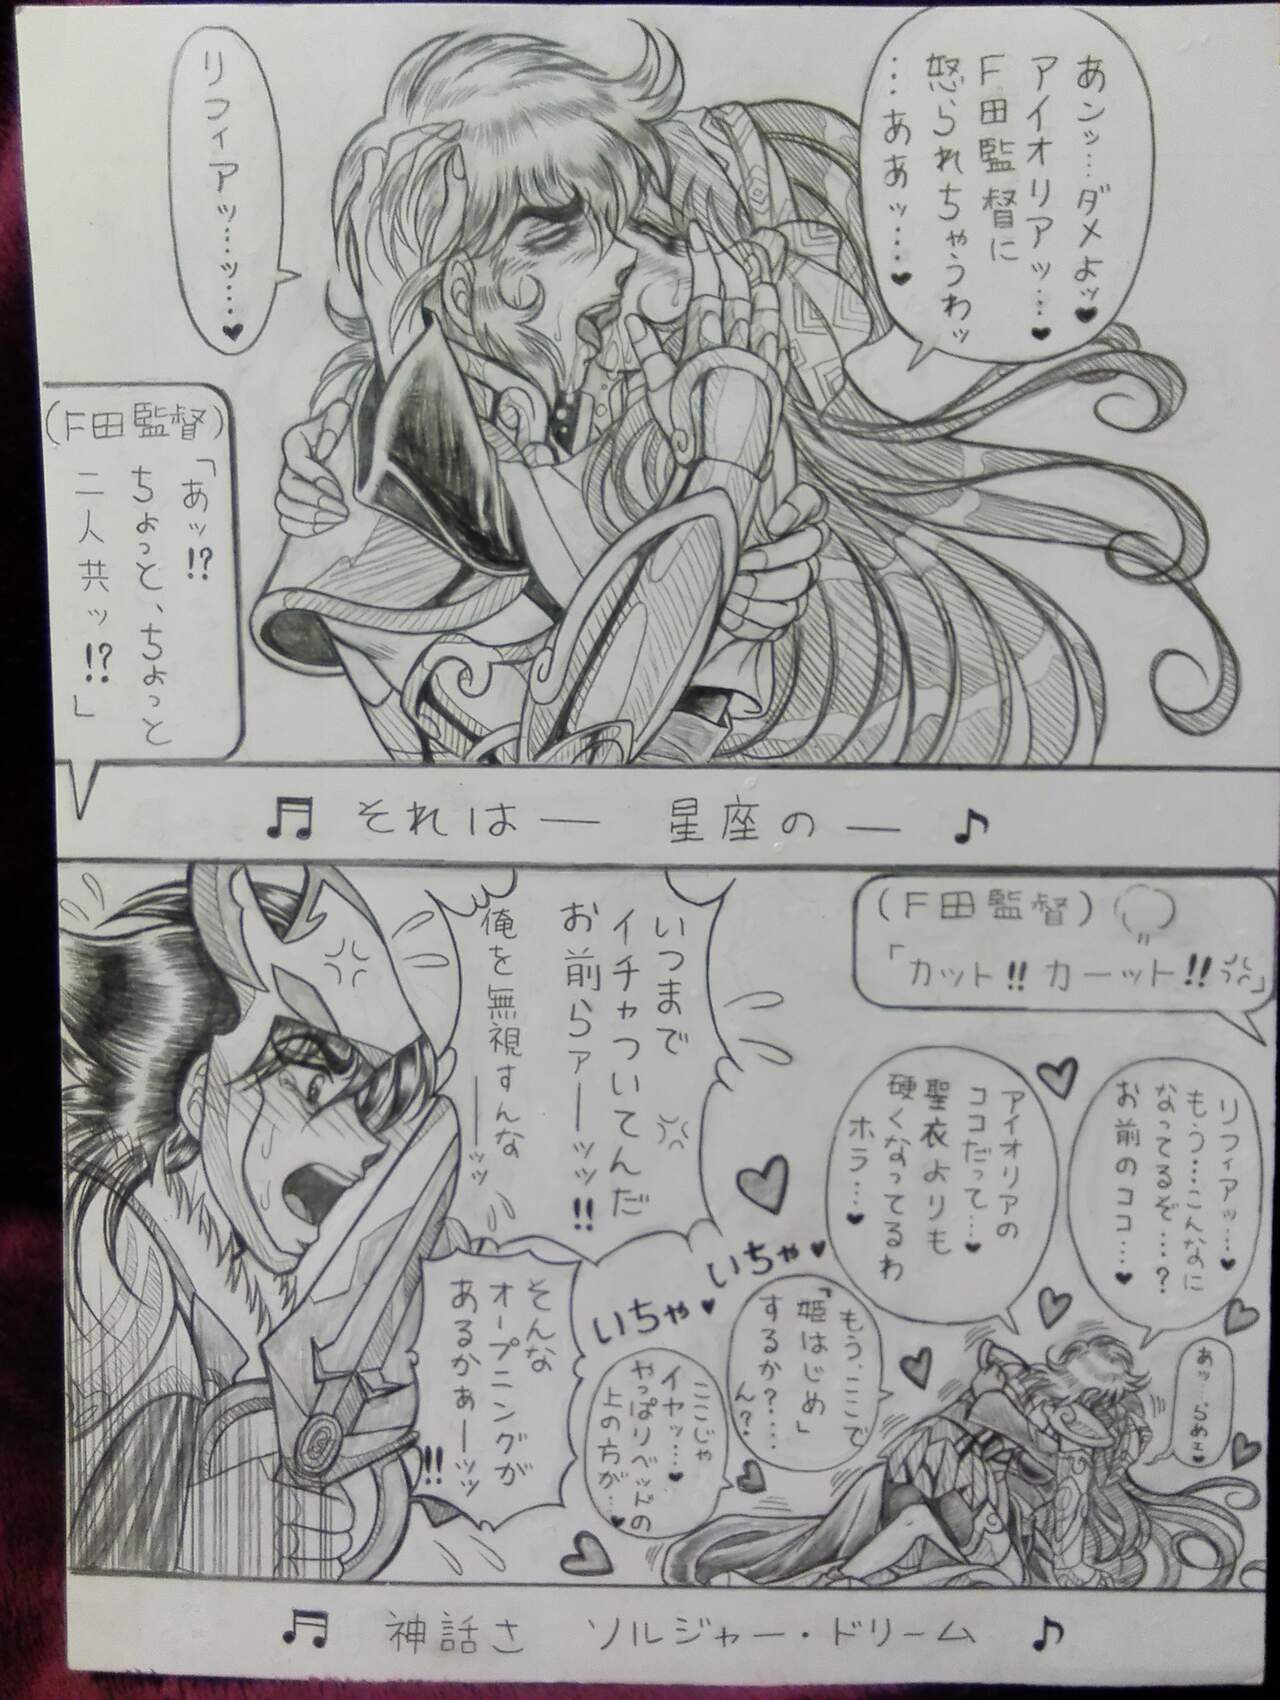 あンッ…ダメよッ♥
アイオリアッ…♥
F田監督に
怒られちゃうわッ
…ああッ…♥
リフィアッ…ッ…♥
(F田監督)
「あッ!?
ちょっと、ちょっと
二人共ッ!?」
♬ それは― 星座の― ♪
(F田監督)
「カット!! カーット!!」
リフィアッ…♥
もう…こんなに
なってるぞ…?
お前のココ…♥
アイオリアの
ココだって…♥
聖衣よりも
硬くなってるわ
ホラ…♥
あッ…らめェ♥
もう、ここで
「姫はじめ」
するか?…
ん?
ここじゃ
イヤッ…♥
やっぱりベッドの
上の方が…♥
いちゃ♥
いちゃ♥
いつまで
イチャついてんだ
お前らァーーッッ!!
俺を無視すんな
ーーッッ
そんな
オープニングが
あるかぁーッッ
!!
♬ 神話さ ソルジャー・ドリーム ♪